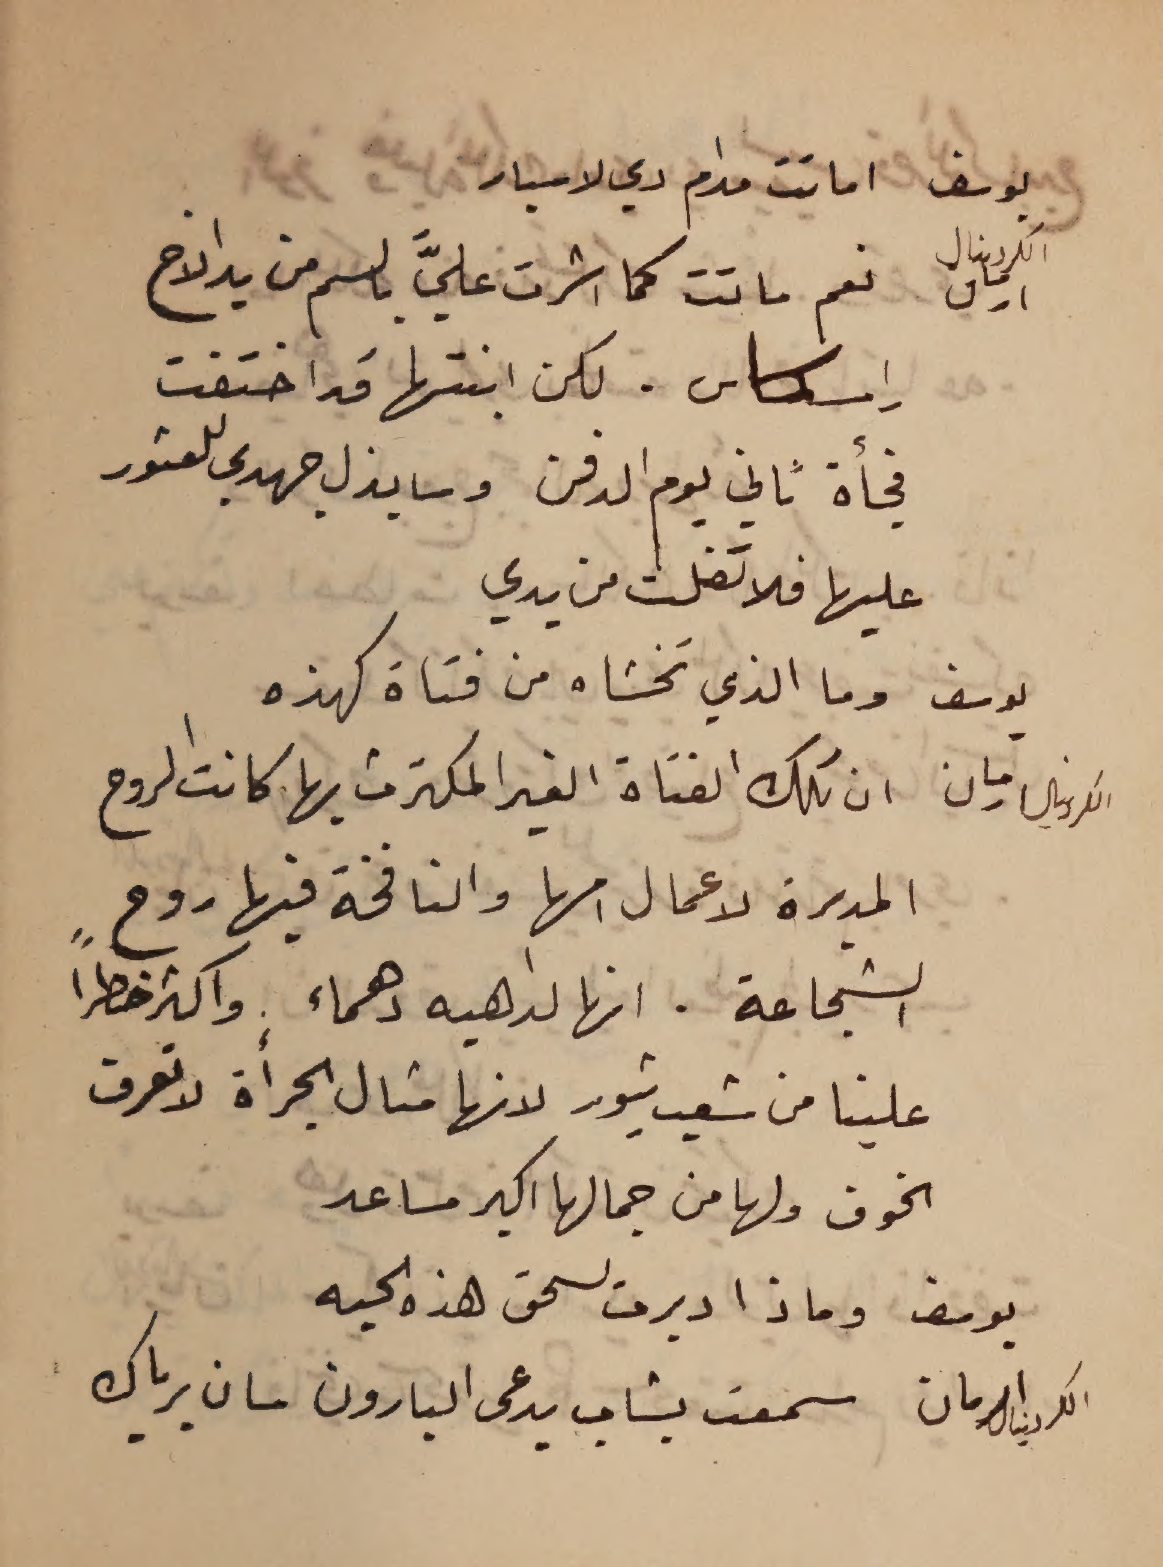 يوسف اماتت مدام دي لاسيار
الكردينال
ارمان نعم ماتت كما اشرت عليَّ بالسم من يد الاخ
لكن ابنتها قد اختفت
فجأة ثاني يوم الدفن وسابذل جهدي للعثور
عليها فلا تفلت من يدي
يوسف وما الذي تخشاه من فتاة كهذه
الكردينال ارمان ان تلك الفتاة الغير المكترث بها كانت الروح
المديرة لاعمال امها والنافخة فيها روح
الشجاعة . انها لداهيه دهماء . واكثر خطراً
علينا من شعب يثور لانها مثال الجرأة لا تعرف
الخوف ولها من جمالها اكبر مساعد
يوسف وماذا دبرت لسحق هذه الحيه
الكردينال ارمان سمعت بشاب يدعى البارون سان برياك